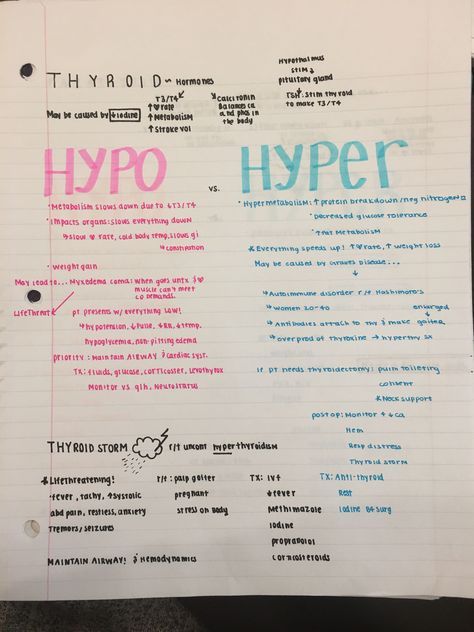 THYROID ~ Hormones
Hypothalmus
stim ↓
pituitary gland
↓
TSH: Stim thyroid
to make T3/T4
T3/T4
↑♥rate
↑Metabolism
↑Stroke vol
Calcitonin
Balances ca
and phos in
the body
May be caused by ↓Iodine
HYPO
vs.
HYPER
•Metabolism slows down due to ↓T3/T4
•Impacts organs: slows everything down
↳slow ♥ rare, cold body temp, slows gi
↳constipation
•weight gain
May lead to... Myxedema coma: when goes untx
muscle can't meet
co demands.
Lifethreat
pt. presents w/ everything low!
↳hypotension, ↓Pulse, ↓RR, ↓temp.
hypoglycemia, non-pitting edema
priority: Maintain AIRWAY & cardiac syst.
TX: fluids, glucose, corticoster, Levothyrox
Monitor vs qlh, Neurostatus
•Hypermetabolism: ↑ protein breakdown/neg nitrogen
•Decreased glucose tolerance
•Fat Metabolism
*Everything speeds up! ↑♥rate, ↑ weight loss
May be caused by Graves Disease...
↓
↳Autoimmune disorder r/t Hashimoto's
↳women 20-40
enlarged
↳Antibodies attach to thy & make goiter
↳over prod of thyroxine → hyperthy sx
If pt needs thyroidectomy: pulm toileting
consent
*Neck support
postop: Monitor ↑↓ca
Hem
Resp distress
Thyroid storm
THYROID STORM
r/t uncont hyperthyroidism
*Lifethreatening!
↑fever, tachy, ↑systolic
abd pain, restless, anxiety
tremors/seizures
r/t: palp goiter
pregnant
stress on body
TX: IVF
↓fever
Methimazole
Iodine
propranolol
corticosteroids
TX: Anti-thyroid
Rest
Iodine B4 surg
MAINTAIN AIRWAY! & Hemodynamics